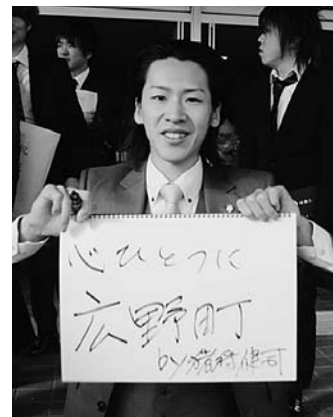 心ひとつに
広野町
by 猪狩健司